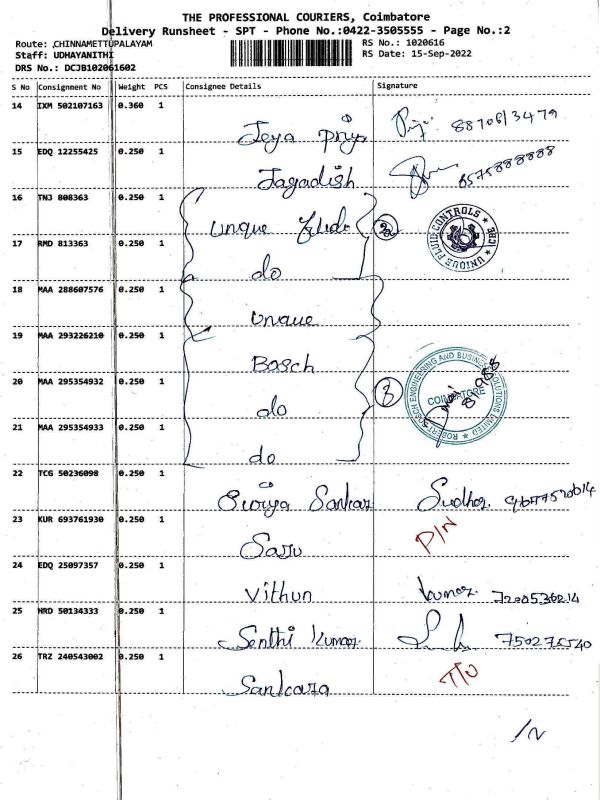 THE PROFESSIONAL COURIERS, Coimbatore
Delivery Runsheet - SPT - Phone No.:0422-3505555 - Page No.:2
Route: CHINNAMETTUPALAYAM RS No.: 1020616
Staff: UDHAYANITHI RS Date: 15-Sep-2022
DRS No.: DCJB102061602
S No Consignment No Weight PCS Consignee Details Signature
14 IXM 502107163 0.360 1
Jeya priya
15 EDQ 12255425 0.250 1
Jagadish 8575888888
16 TNJ 808363 0.250 1
Unque
UNIQUE FLUID CONTROLS ★ CBE ★
17 RMD 813363 0.250 1
do
18 MAA 288607576 0.250 1
Unque
19 MAA 293226210 0.250 1
Bosch
20 MAA 295354932 0.250 1
do
3
COIMBATORE
21 MAA 295354933 0.250 1
do
22 TCG 50236098 0.250 1
Surya Sankar Sudhar
23 KUR 693761930 0.250 1
Saru P/N
24 EDQ 25097357 0.250 1
Vithun kumar 7200536214
25 HRD 50134333 0.250 1
Senthi kumar 750275540
26 TRZ 240543002 0.250 1
Sankara